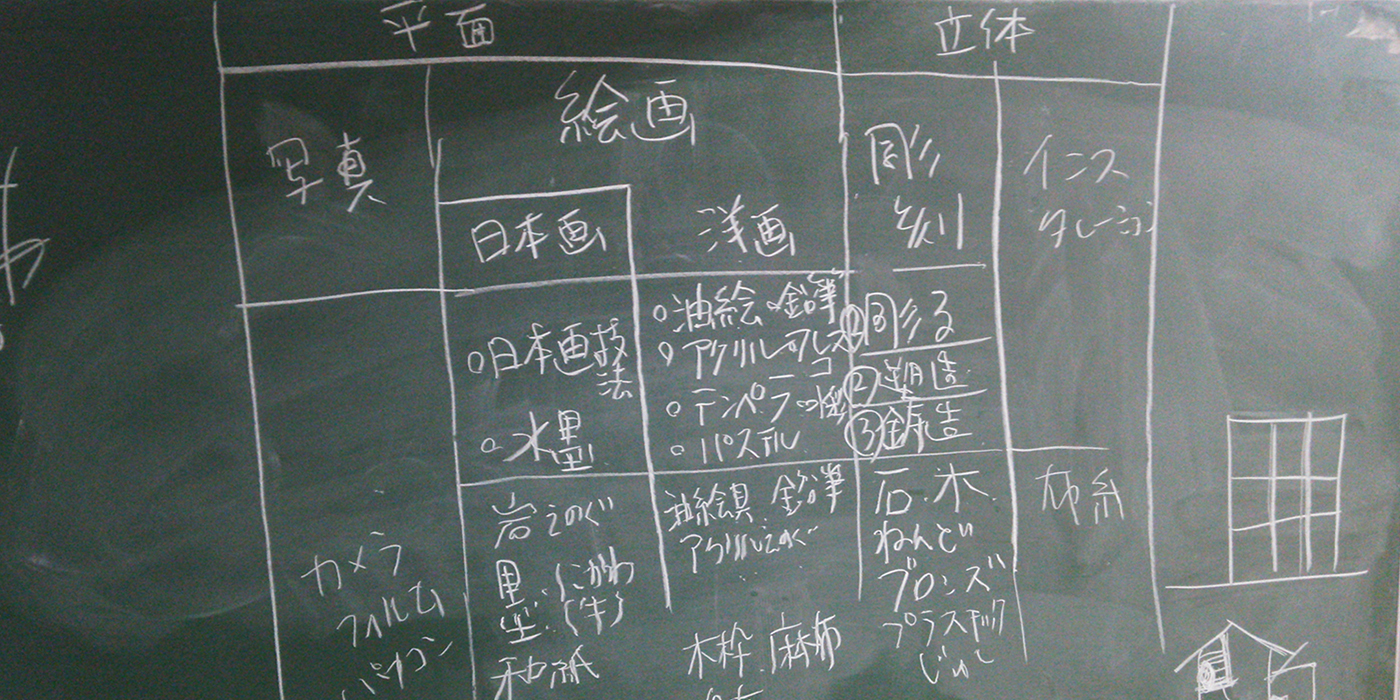 平面
立体
写真
絵画
彫刻
インスタレーション
日本画
洋画
○日本画技法
○水墨
○油絵 ○鉛筆
○アクリル ○フレスコ
○テンペラ
○パステル
①彫る
②塑造
③鋳造
カメラ
フィルム
パソコン
岩えのぐ
墨 にかわ
(牛)
和紙
油絵具 鉛筆
アクリルえのぐ
木枠 麻布
石 木
ねんど
ブロンズ
プラスチック
布 糸